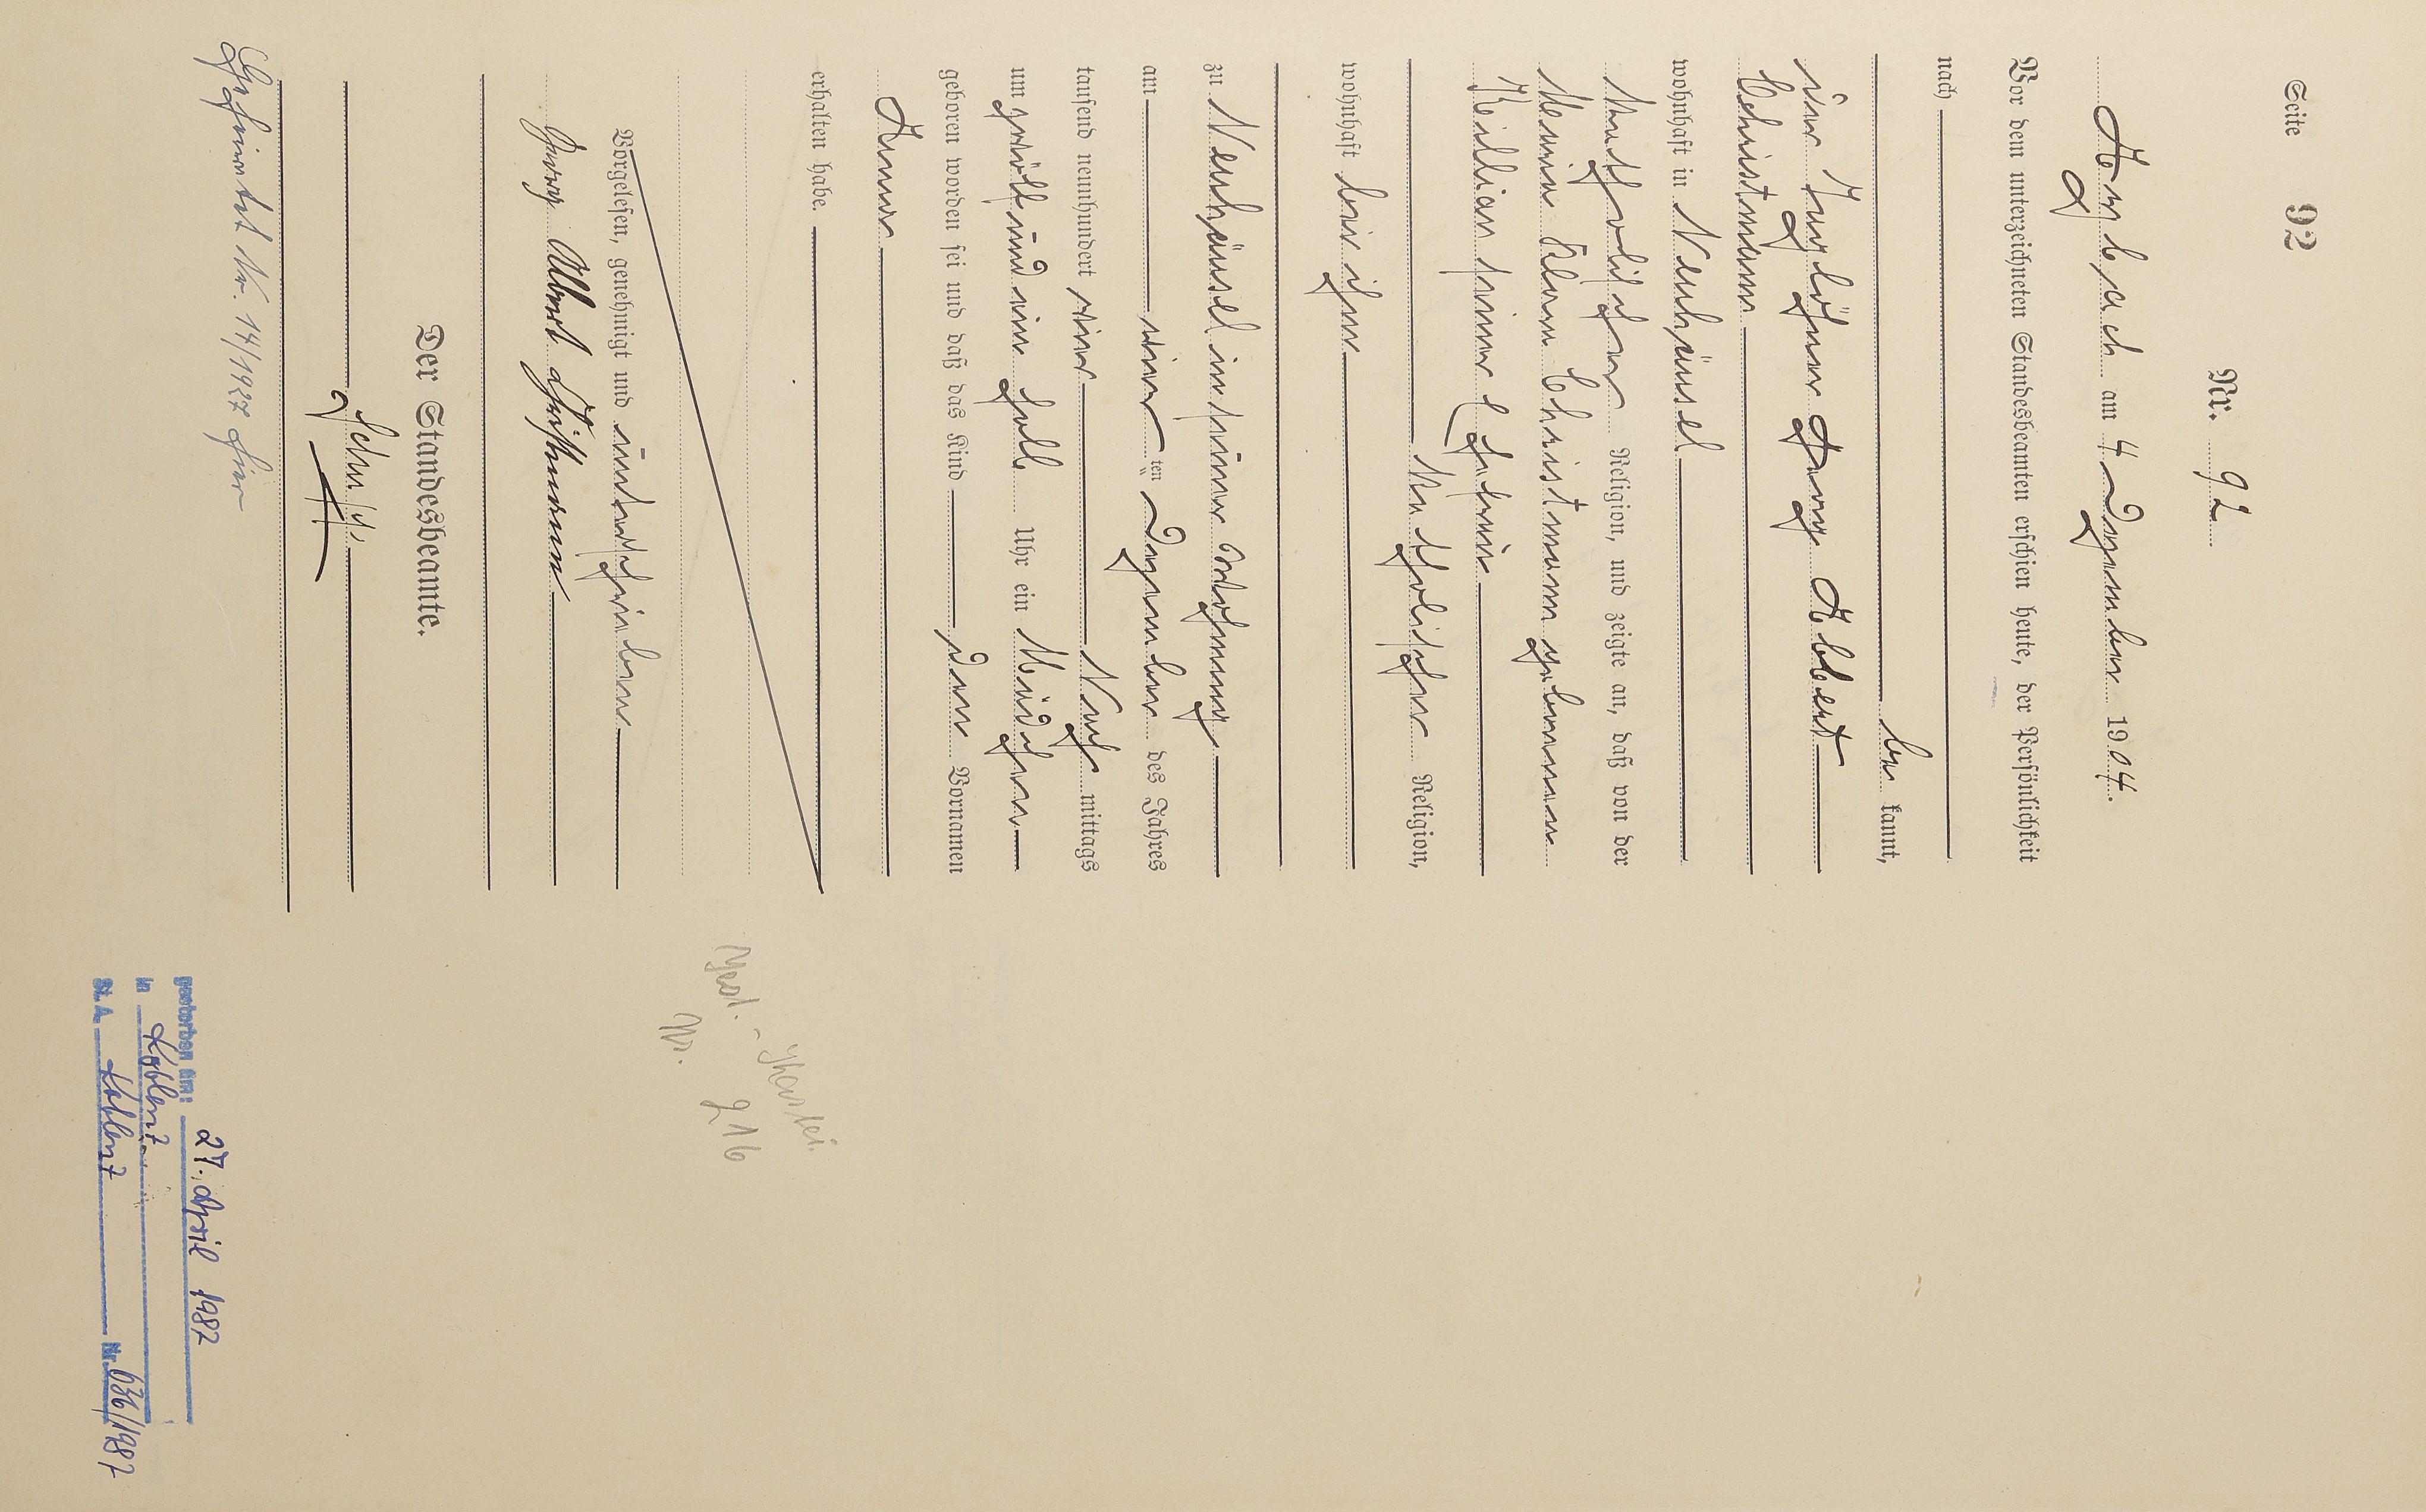 Seite 92
Nr. 92
Arzbach am 4 Dezember 1904.
Vor dem unterzeichneten Standesbeamten erschien heute, der Persönlichkeit
nach
be kannt,
der Taglöhner Georg Albert
Christmann
wohnhaft in Neuhäusel
katholischer Religion, und zeigte an, daß von der
Klara Christmann geborenen
Killian seiner Ehefrau
katholischer Religion,
wohnhaft bei ihm
zu Neuhäusel in seiner Wohnung
am vier ten Dezember des Jahres
tausend neunhundert vier Nach mittags
um zwölf und ein halb Uhr ein Mädchen
geboren worden sei und daß das Kind den Vornamen
Anna
erhalten habe.
Vorgelesen, genehmigt und unterschrieben
Georg Albert Christmann
Der Standesbeamte.
Geheiratet Nr. 14/1927 hier
Nr. 216
gestorben am: 27. April 1987
in Koblenz
St. A. Koblenz Nr. 636/1987